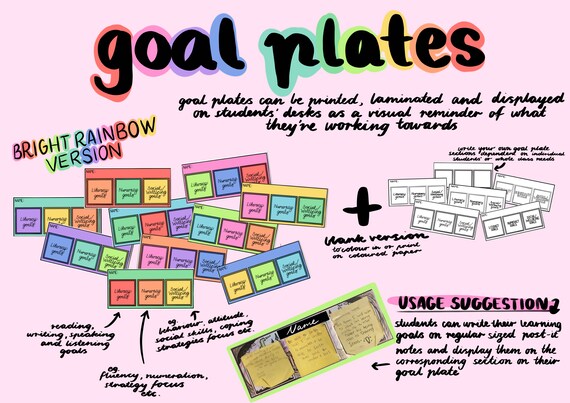 goal plates
goal plates can be printed, laminated and displayed
on students' desks as a visual reminder of what
they're working towards
BRIGHT RAINBOW
VERSION
write your own goal plate
sections dependent on individual
students' or whole class needs
NAME:
Literacy goals
Numeracy goals
Social/wellbeing goals
+
blank version
to colour in or print
on coloured paper
reading,
writing, speaking
and listening
goals
eg.
fluency, numeration,
strategy focus
etc.
eg.
behaviour, attitude,
social skills, coping
strategies focus etc.
Name
USAGE SUGGESTION
students can write their learning
goals on regular sized post-it
notes and display them on the
corresponding section on their
goal plate